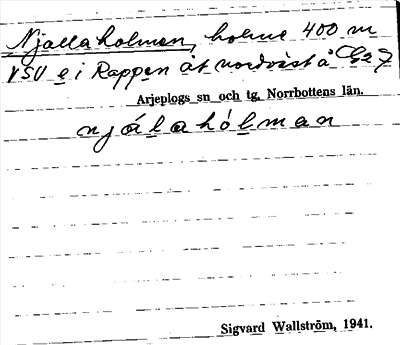 Njallaholmen, holme 400 m
VSV e i Rappen åt nordväst å
Arjeplogs sn och tg, Norrbottens län.
njálahólman
Sigvard Wallström, 1941.